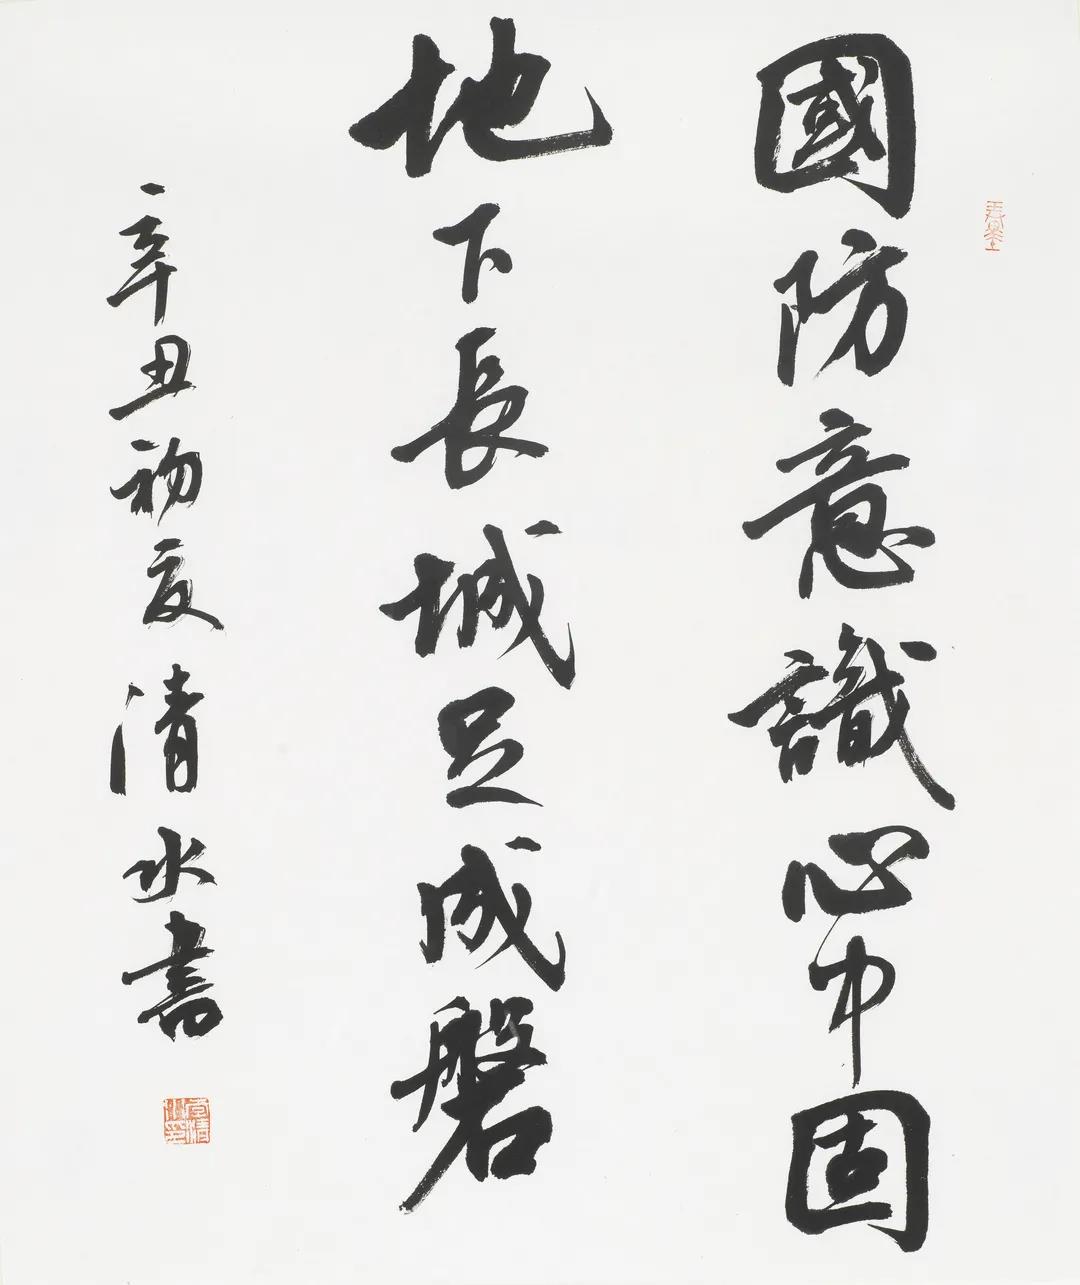 國防意識心中固
地下長城足成磐
辛丑初夏清水書